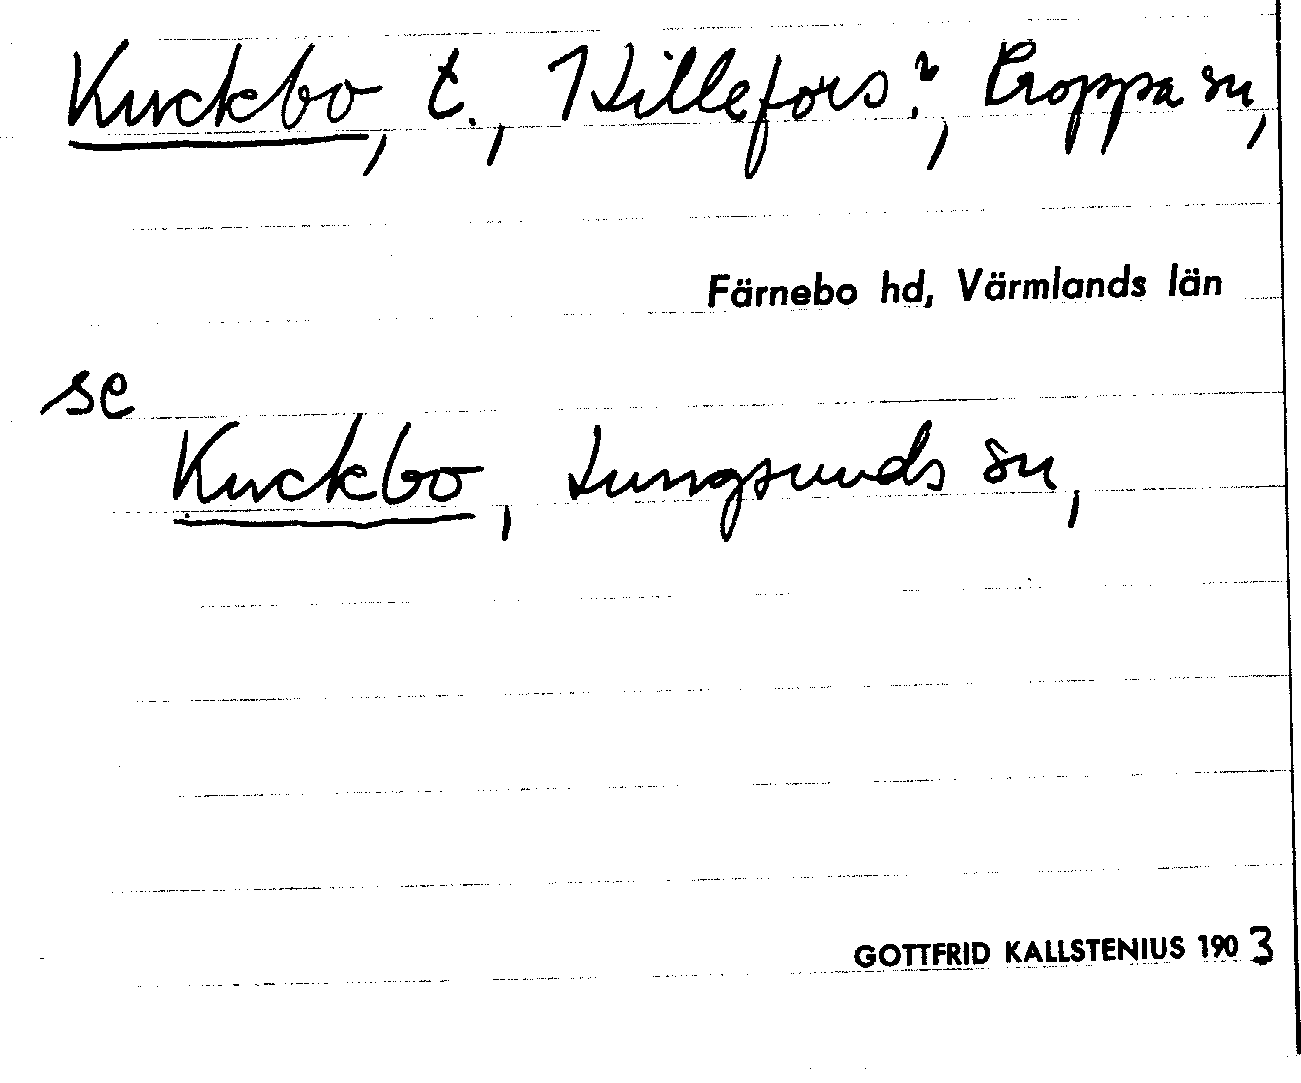 Kuckbo, t., Hillefors?, Kroppa sn,
Färnebo hd, Värmlands län
se
Kuckbo, Lungsunds sn,
GOTTFRID KALLSTENIUS 1903